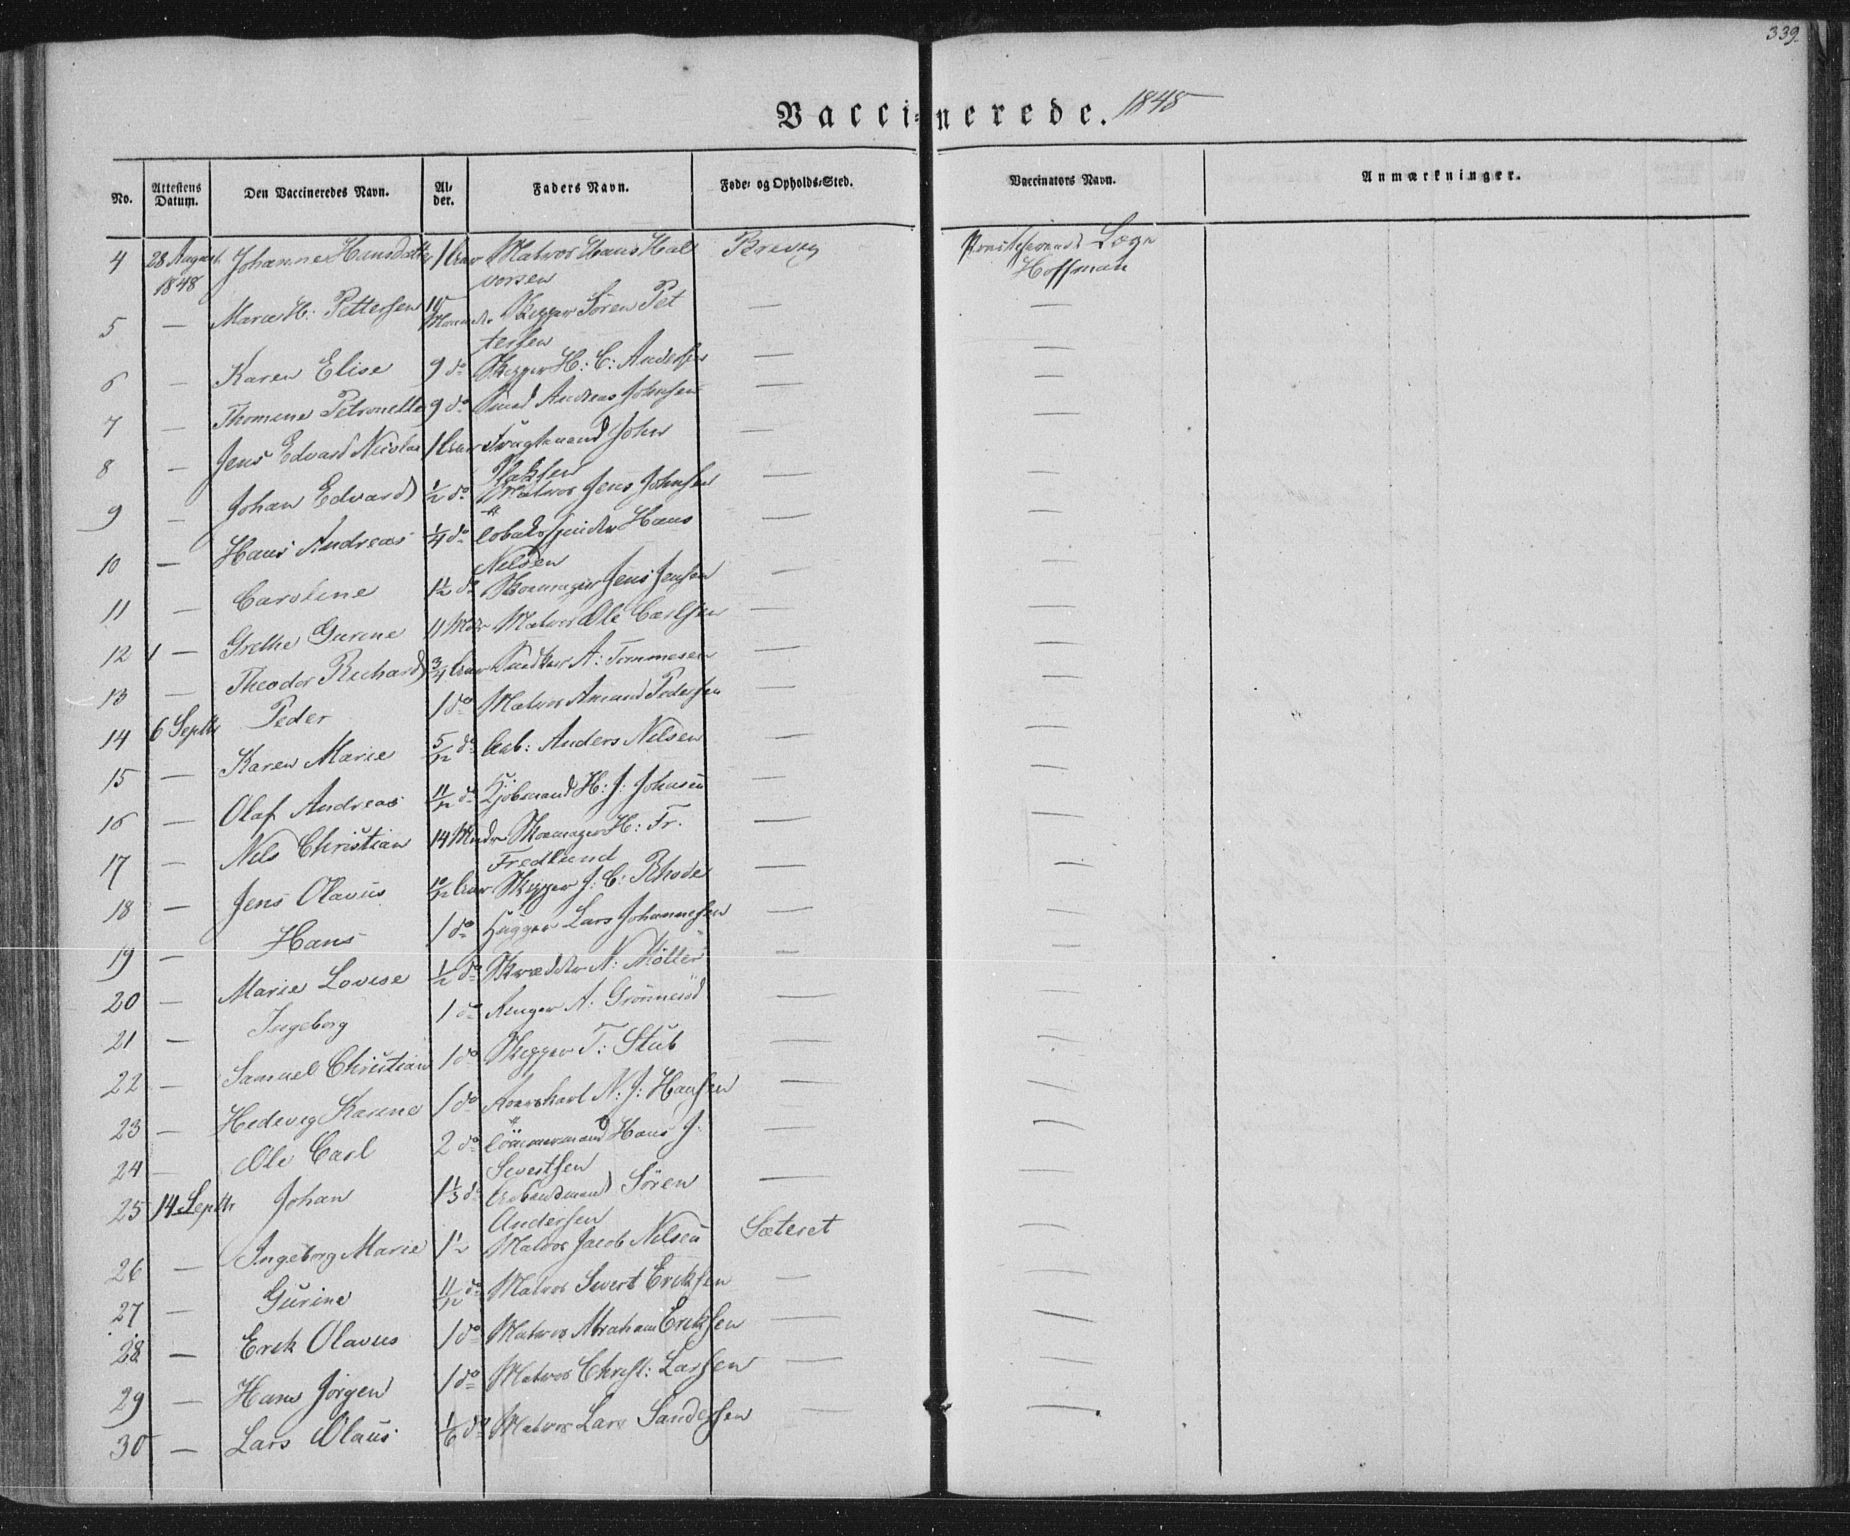 339.
Vaccinerede. 1848
No. Attestens Datum. Den Vaccineredes Navn. Alder. Faders Navn. Føde- og Opholds-Sted. Vaccinators Navn. Anmærkninger.
4 28 August 1848 Johanne Hansdatter 1 Aar Matros Hans Halvorsen Brevig Læge Hoffman
5 — Maren H: Pettersen 10 Maaneder Skipper Søren Pettersen — —
6 — Karen Elise 9 do Skipper H: C: Andersen — —
7 — Thomine Petronelle 9 do Smed Andreas Johnsen — —
8 — Jens Edvard Nicolai 1 Aar Fragtemand John Isaksen — —
9 — Johan Edvard 1/2 do Matros Jens Johnsen — —
10 — Hans Andreas 1/4 do Tobaksspinder Hans Nilsen — —
11 — Caroline 1 1/2 do Skomager Jens Jensen — —
12 1 — Grethe Gurine 11 Mdr Matros Ole Carlsen — —
13 — Theodor Richard 3/4 Aar Snedker A: Tommesen — —
14 6 Septbr Peder 1 do Matros Amund Pedersen — —
15 — Karen Marie 5/12 do Arb: Anders Nilsen — —
16 — Olaf Andreas 11/12 do Kjøbmand H: J: Johnsen — —
17 — Nils Christian 14 Mndr Skomager H: Fr. Fredlund — —
18 — Jens Olavus 10/12 Aar Skipper J: C: Rhode — —
19 — Hans 1 do Hugger Lars Johannesen — —
20 — Marie Lovise 1/2 do Skrædder N: Møller — —
21 — Ingeborg 1 do A: — —
22 — Samuel Christian 1 do Skipper T: Stub — —
23 — Hedevig Karine 1 do N: J: Hansen — —
24 — Ole Carl 2 do Tømmermand Hans J. Sivertsen — —
25 14 Septbr Johan 1 1/3 do Arbeidsmand Søren Andersen — —
26 — Ingeborg Marie 1 1/2 Matros Jacob Nilsen Sæteret —
27 — Gurine 11/12 do Matros Sivert Eriksen — —
28 — Erik Olavus 1 do Matros Abraham Eriksen — —
29 — Hans Jørgen 1 do Matros Christ: Larsen — —
30 — Lars Olaus 1/6 do Matros Lars Sandersen — —